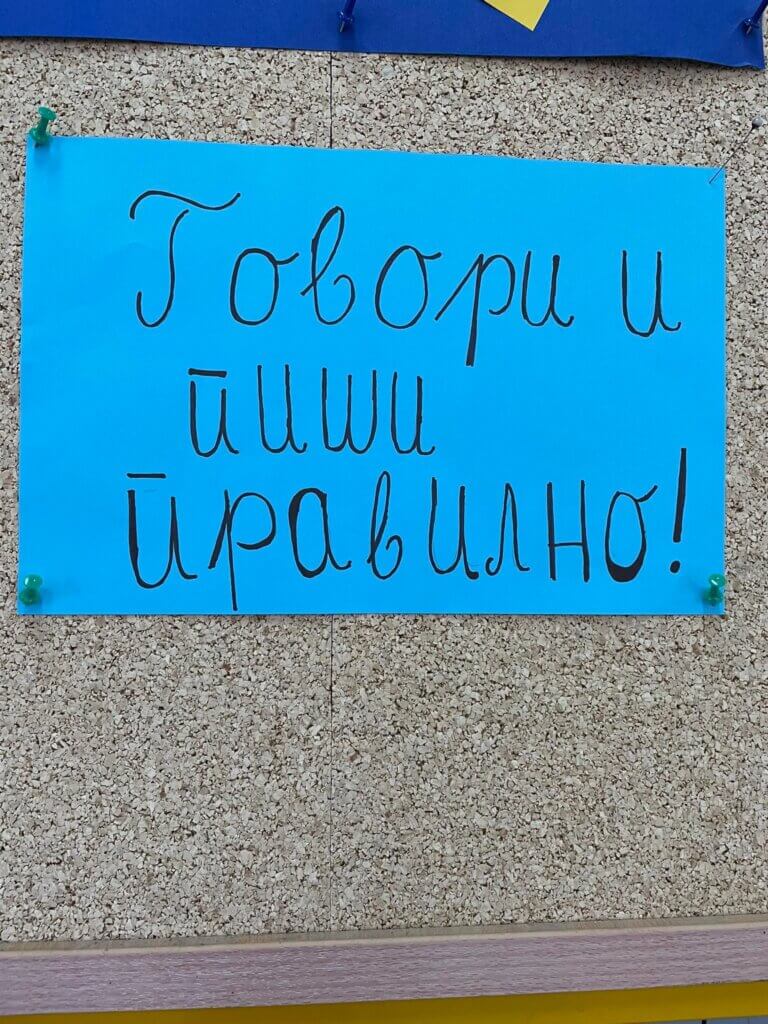 Говори и
пиши
правилно!